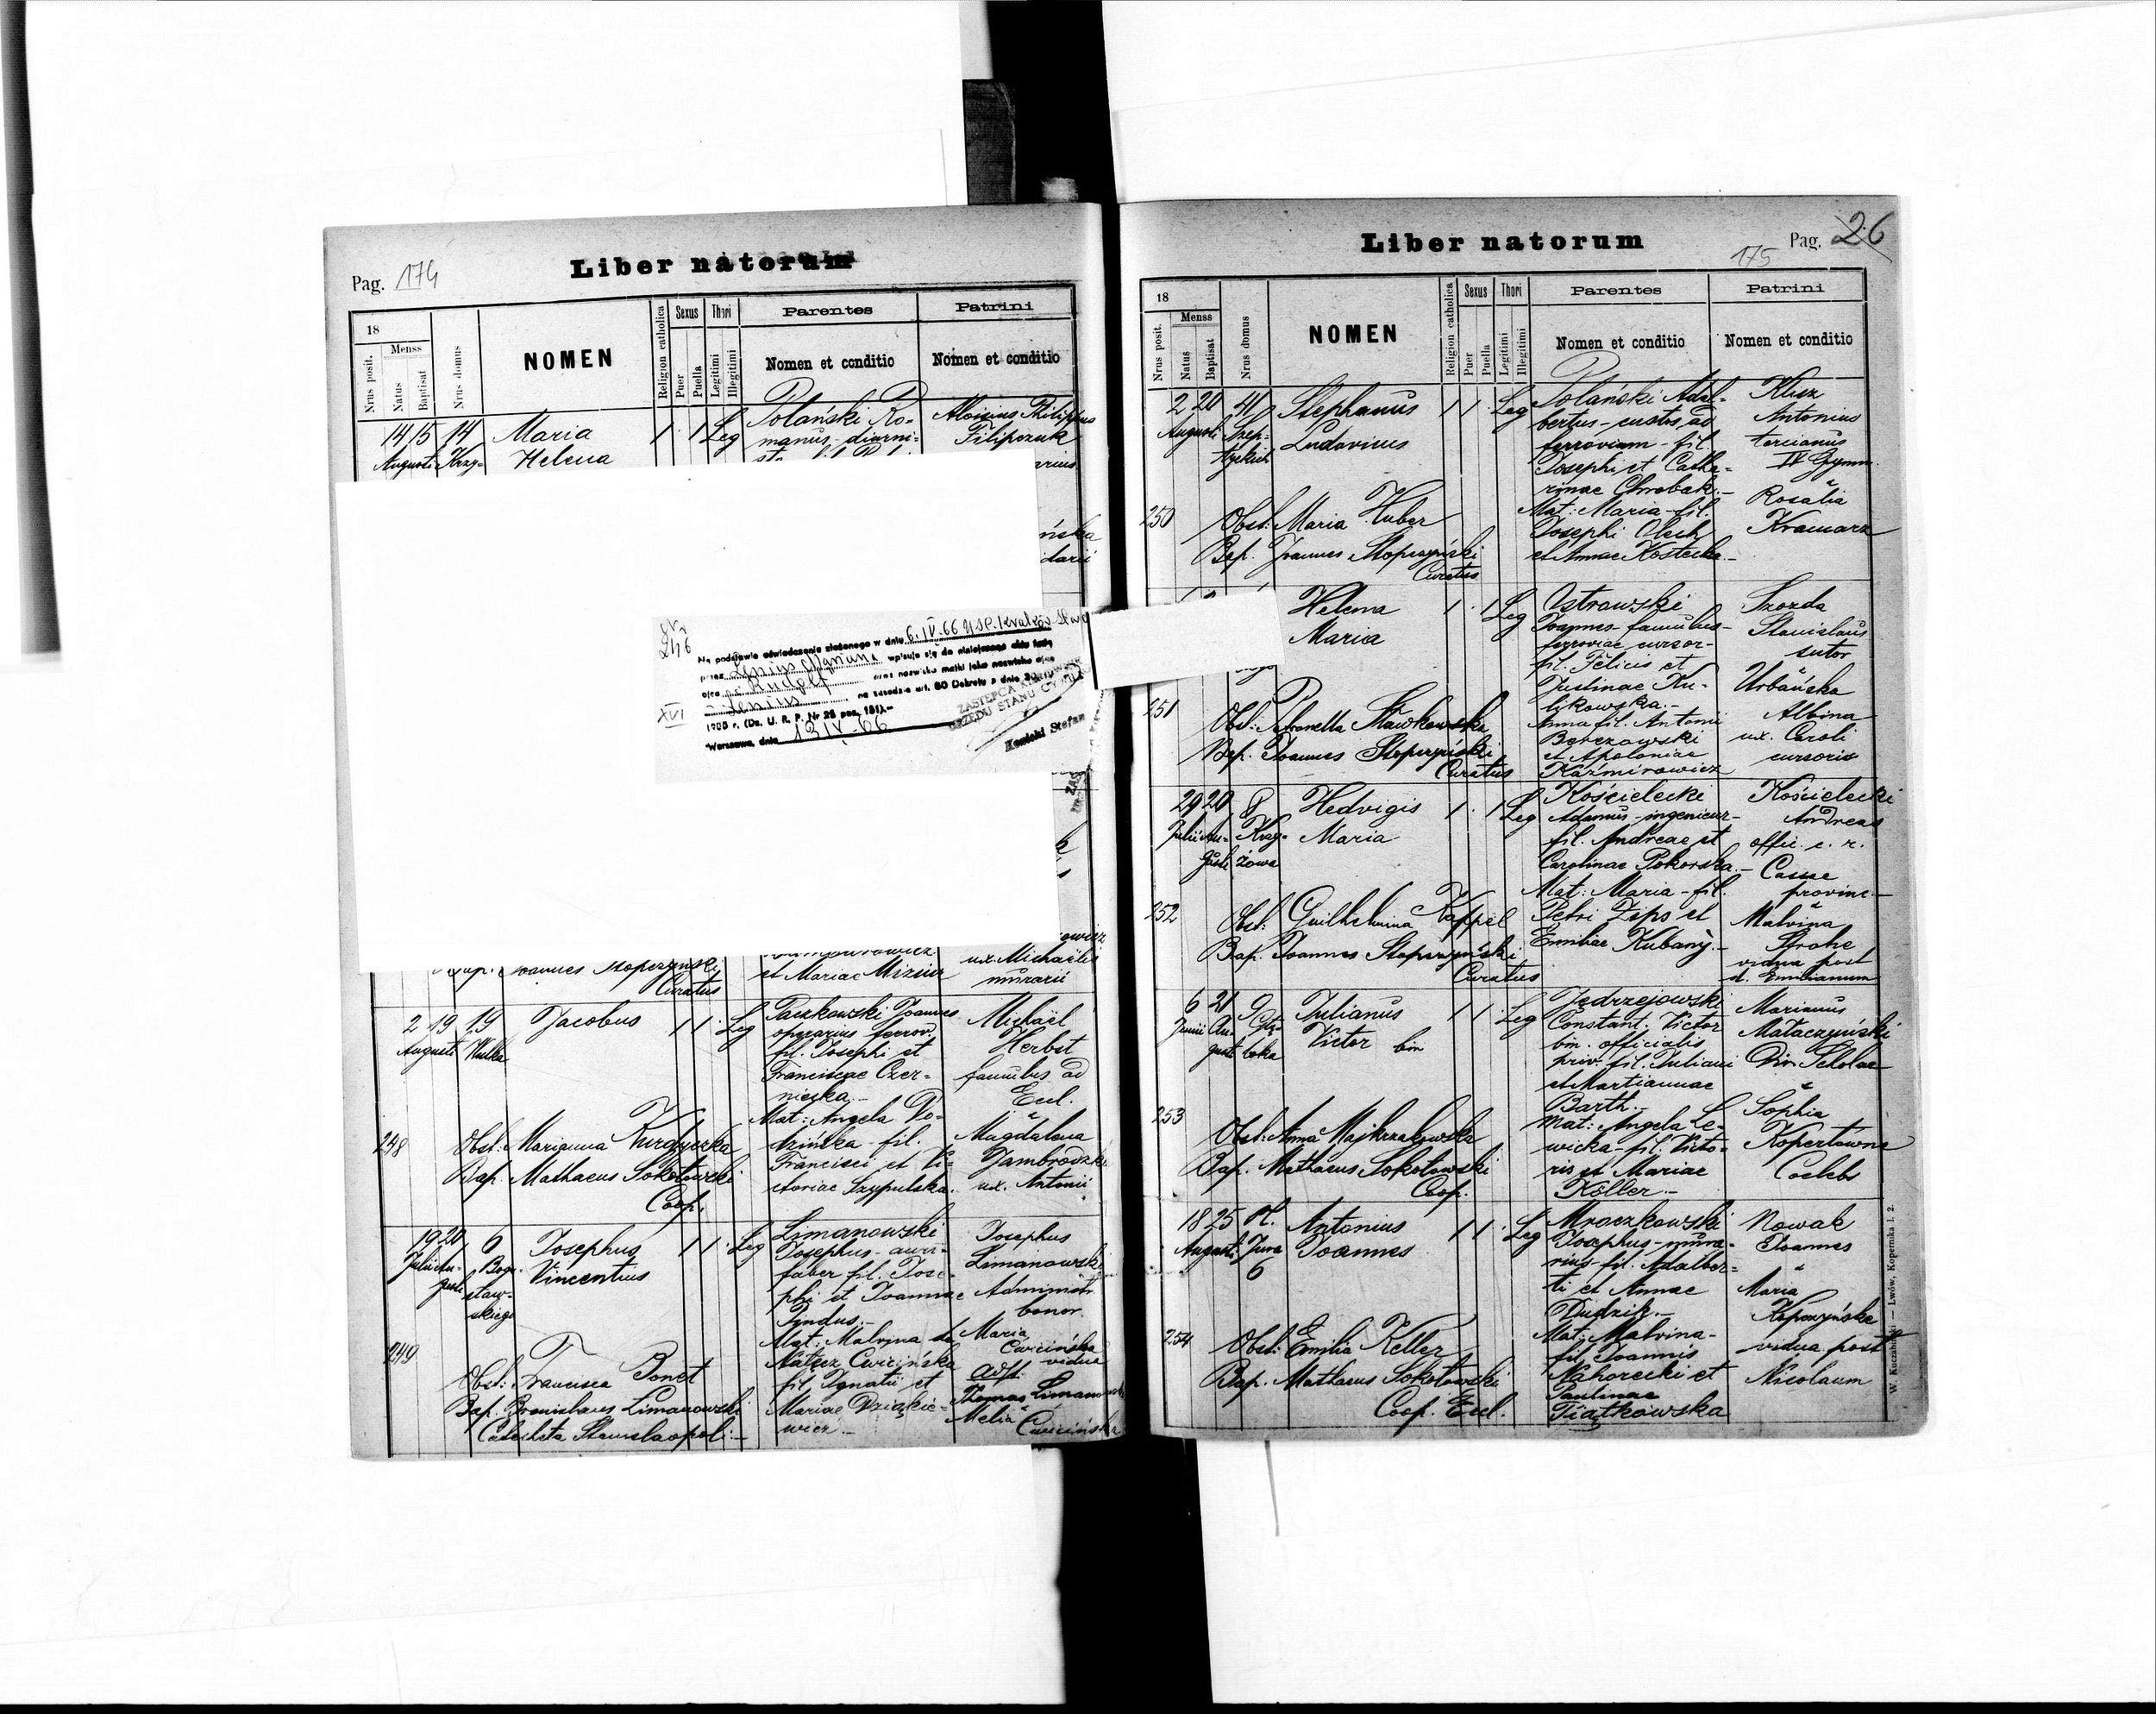 Pag. 174
Liber natorum
18
Nrus posit.
Menss
Natus
Baptisat
Nrus domus
NOMEN
Religion catholica
Sexus
Puer
Puella
Thori
Legitimi
Illegitimi
Parentes
Nomen et conditio
Patrini
Nomen et conditio
14 15 14 Maria 1 1 Leg Polański Ro- Aloisius Philippus
Augusti Krzy- Helena manus - diurni- Filipczuk
246
Na podstawie oświadczenia złożonego w dniu 6.IV.66
przez Lenius Mariana wpisuje się do niniejszego aktu
ojca Rudolf oraz nazwisko matki jako nazwisko ojca
Lenius na zasadzie art. 80 Dekretu z dnia
XVI
1955 r. (Dz. U. R. P. Nr 25 poz. 151).-
Warszawa, dnia 13 IV. 66
ZASTĘPCA KIEROWNIKA
URZĘDU STANU CYWILNEGO
Stefan
Bap. Joannes Stopczyński et Mariae ux. Michaëlis
Curatus murarii
2 19 19 Jacobus 1 1 Leg Paczkowski Joannes Michaël
Augusti Hulka operarius ferrov. Herbst
fil. Josephi et famulus ad
Franciscae Czer- Eccl.
nieska.-
Mat: Angela Po-
248 Obst: Marianna Kurdyczka fil. Magdalena
Bap. Mathaeus Sokołowski Francisci et Vi- Jambrodzki
Coop. ctoriae Szypulska.- ux. Antonii
19 20 6 Josephus 1 1 Leg Limanowski Josephus
Julii Au- Bogu- Vincentius Josephus - auri- Limanowski
gusti sław- faber fil. Jose- Administr.
skiego phi et Joannae bonor.
Pyndus.-
249 Mat: Malvina de Maria
Nałęcz Cwicińska Cwicińska
vidua
Obst: Francisca Bonet fil. Ignatii et
Bap. Bronislaus Limanowski Mariae Thomas Limanowski
Catecheta Stanislaopoli.- wicz.- Melia Cwicińska
Liber natorum
175
Pag. 26
18
Nrus posit.
Menss
Natus
Baptisat
Nrus domus
NOMEN
Religion catholica
Sexus
Puer
Puella
Thori
Legitimi
Illegitimi
Parentes
Nomen et conditio
Patrini
Nomen et conditio
2 20 41 Stephanus 1 1 Leg Polański Adal- Klisz
Augusti Szep- Ludovicus bertus - custos ad Antonius
tyckich ferroviam - fil. tercianus
Josephi et Cathe- IV Gymn.
rinae Chrobak.-
250 Obst: Maria Huber Mat: Maria - fil. Rosalia
Josephi Olech Kramarz
Bap. Joannes Stopczyński et Annae Kostecka.-
Curatus
Helena 1 1 Leg Ostrowski Szozda
Maria Joannes - famulus - Stanislaus
ferroviae cursor - sutor
fil. Felicis et
Justinae Ku- Urbańska
likowska.-
251 Obst: Petronella Sławkowska Anna fil. Antonii Albina
Berezowski ux. Caroli
Bap. Joannes Stopczyński et Apoloniae cursoris
Curatus Kaźmirowicz
29 20 8 Hedvigis 1 1 Leg Kościelecki Kościelecki
Julii Au- Krzy- Maria Adamus - ingenieur - Andreas
gusti żowa fil. Andreae et offic. c. r.
Carolinae Pokorska.- Cassae
Mat: Maria - fil. provinc.-
252 Obst: Guilhelmina Kappel Petri Zips et Malvina
Bap. Joannes Stopczyński Emiliae Kubany.- Strohe
Curatus vidua post
d. Emilianum
6 21 9 Julianus 1 1 Leg Jędrzejowski Marianus
Junii Au- Victor bin Constant. Victor Małaczyński
gusti bin. officialis Dir. Scholae
priv. fil. Juliani
et Martiannae
Barth.- Sophia
253 Obst: Anna Majkrzakowska Mat: Angela Le- Kopertowna
Bap. Mathaeus Sokołowski wicka - fil. Victo- Coelebs
Coop. ris et Mariae
Köller.-
18 25 Pl. Antonius 1 1 Leg Mroczkowski Nowak
Augusti Jura Joannes Josephus - mura- Joannes
6 rius - fil. Adalber-
ti et Annae Maria
Dudzik.- Kopczyńska
254 Obst: Emilia Keller Mat: Malvina - vidua post
fil. Joannis Nicolaum
Bap. Mathaeus Sokołowski Nahorecki et
Coop. Eccl. Paulinae
Piątkowska
W. Kuczabiński — Lwów, Kopernika l. 2.